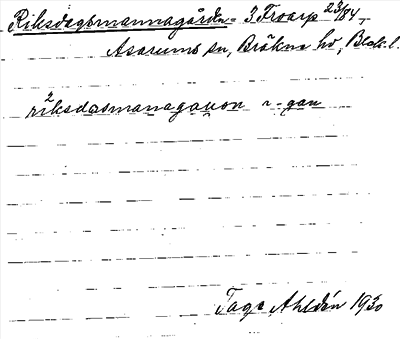 Riksdagsmannagården - 3 Froarp 23/84 -
Asarums sn, Bräkne hd, Blek. l.
ri²ksdasmanagauon r-gau
Tage Ahldén 1930